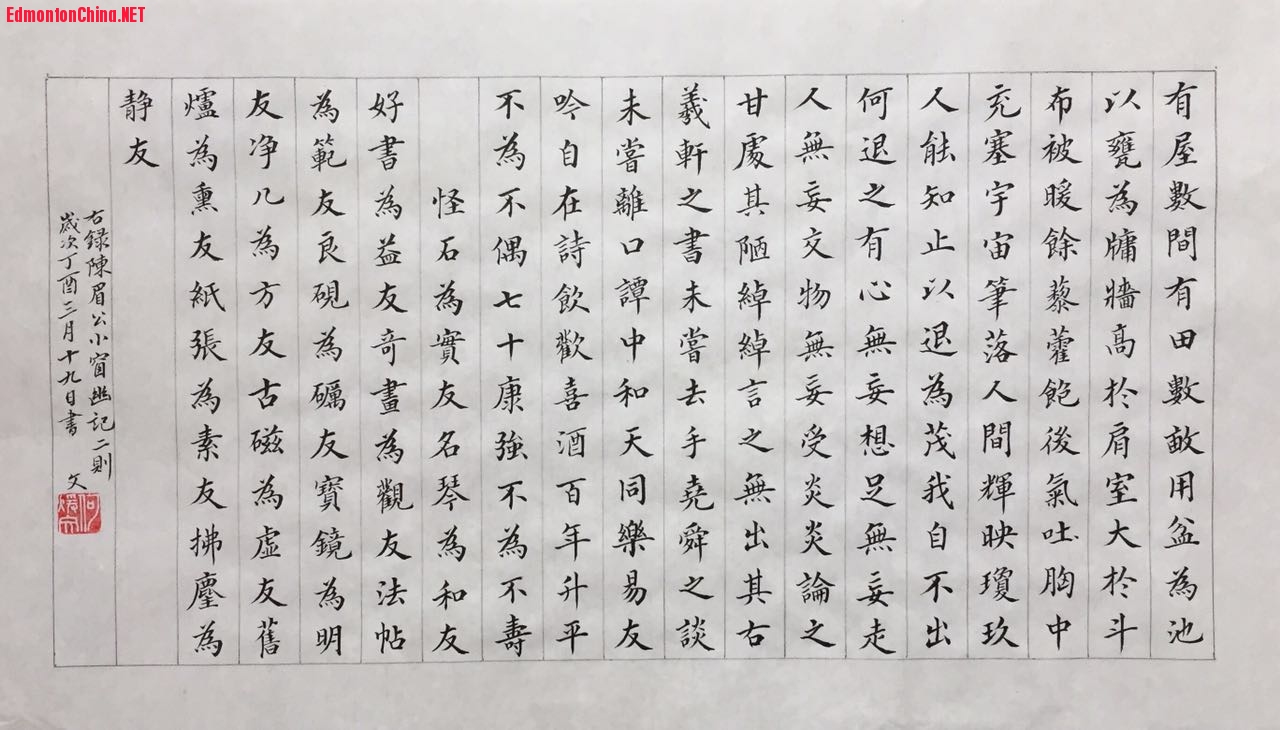 EdmontonChina.NET
有屋數間有田數畝用盆為池
以甕為牖牆高於肩室大於斗
布被暖餘藜藿飽後氣吐胸中
充塞宇宙筆落人間輝映瓊玖
人能知止以退為茂我自不出
何退之有心無妄想足無妄走
人無妄交物無妄受炎炎論之
甘處其陋綽綽言之無出其右
羲軒之書未嘗去手堯舜之談
未嘗離口譚中和天同樂易友
吟自在詩飲歡喜酒百年升平
不為不偶七十康強不為不壽
怪石為實友名琴為和友
好書為益友奇畫為觀友法帖
為範友良硯為礪友寶鏡為明
友净几為方友古磁為虛友舊
爐為熏友紙張為素友拂麈為
静友
右錄陳眉公小窗幽記二則
歲次丁酉三月十九日書 文